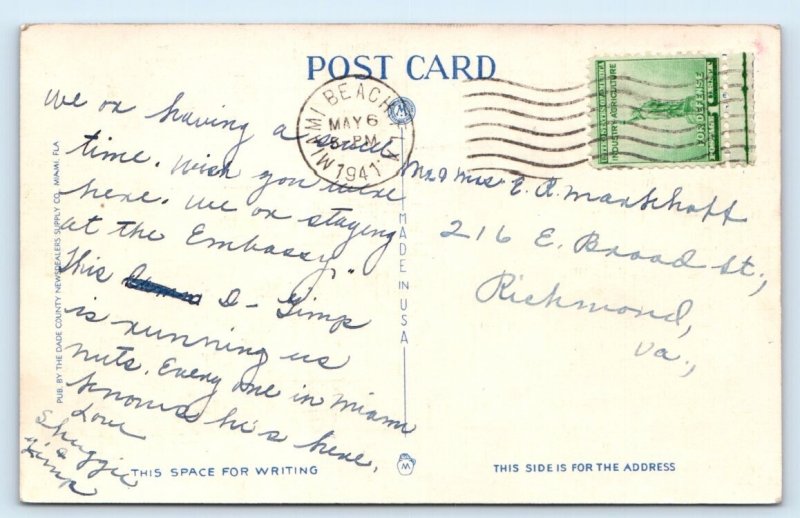 POST CARD
MIAMI BEACH
MAY 6
5 PM
1941
UNITED STATES OF AMERICA
INDUSTRY AGRICULTURE
FOR DEFENSE
We on having a swell
time. Wish you were
here. We on staying
at the Embassy."
This D- Gimp
is running us
nuts. Every one in Miami
knows he's here.
Love
Shuggie
&
Gimp
Mr & Mrs E. R. Marshhoff
216 E. Broad St.,
Richmond,
Va.,
PUB. BY THE DADE COUNTY NEWSDEALERS SUPPLY CO., MIAMI, FLA.
MADE IN USA
M
THIS SPACE FOR WRITING
THIS SIDE IS FOR THE ADDRESS